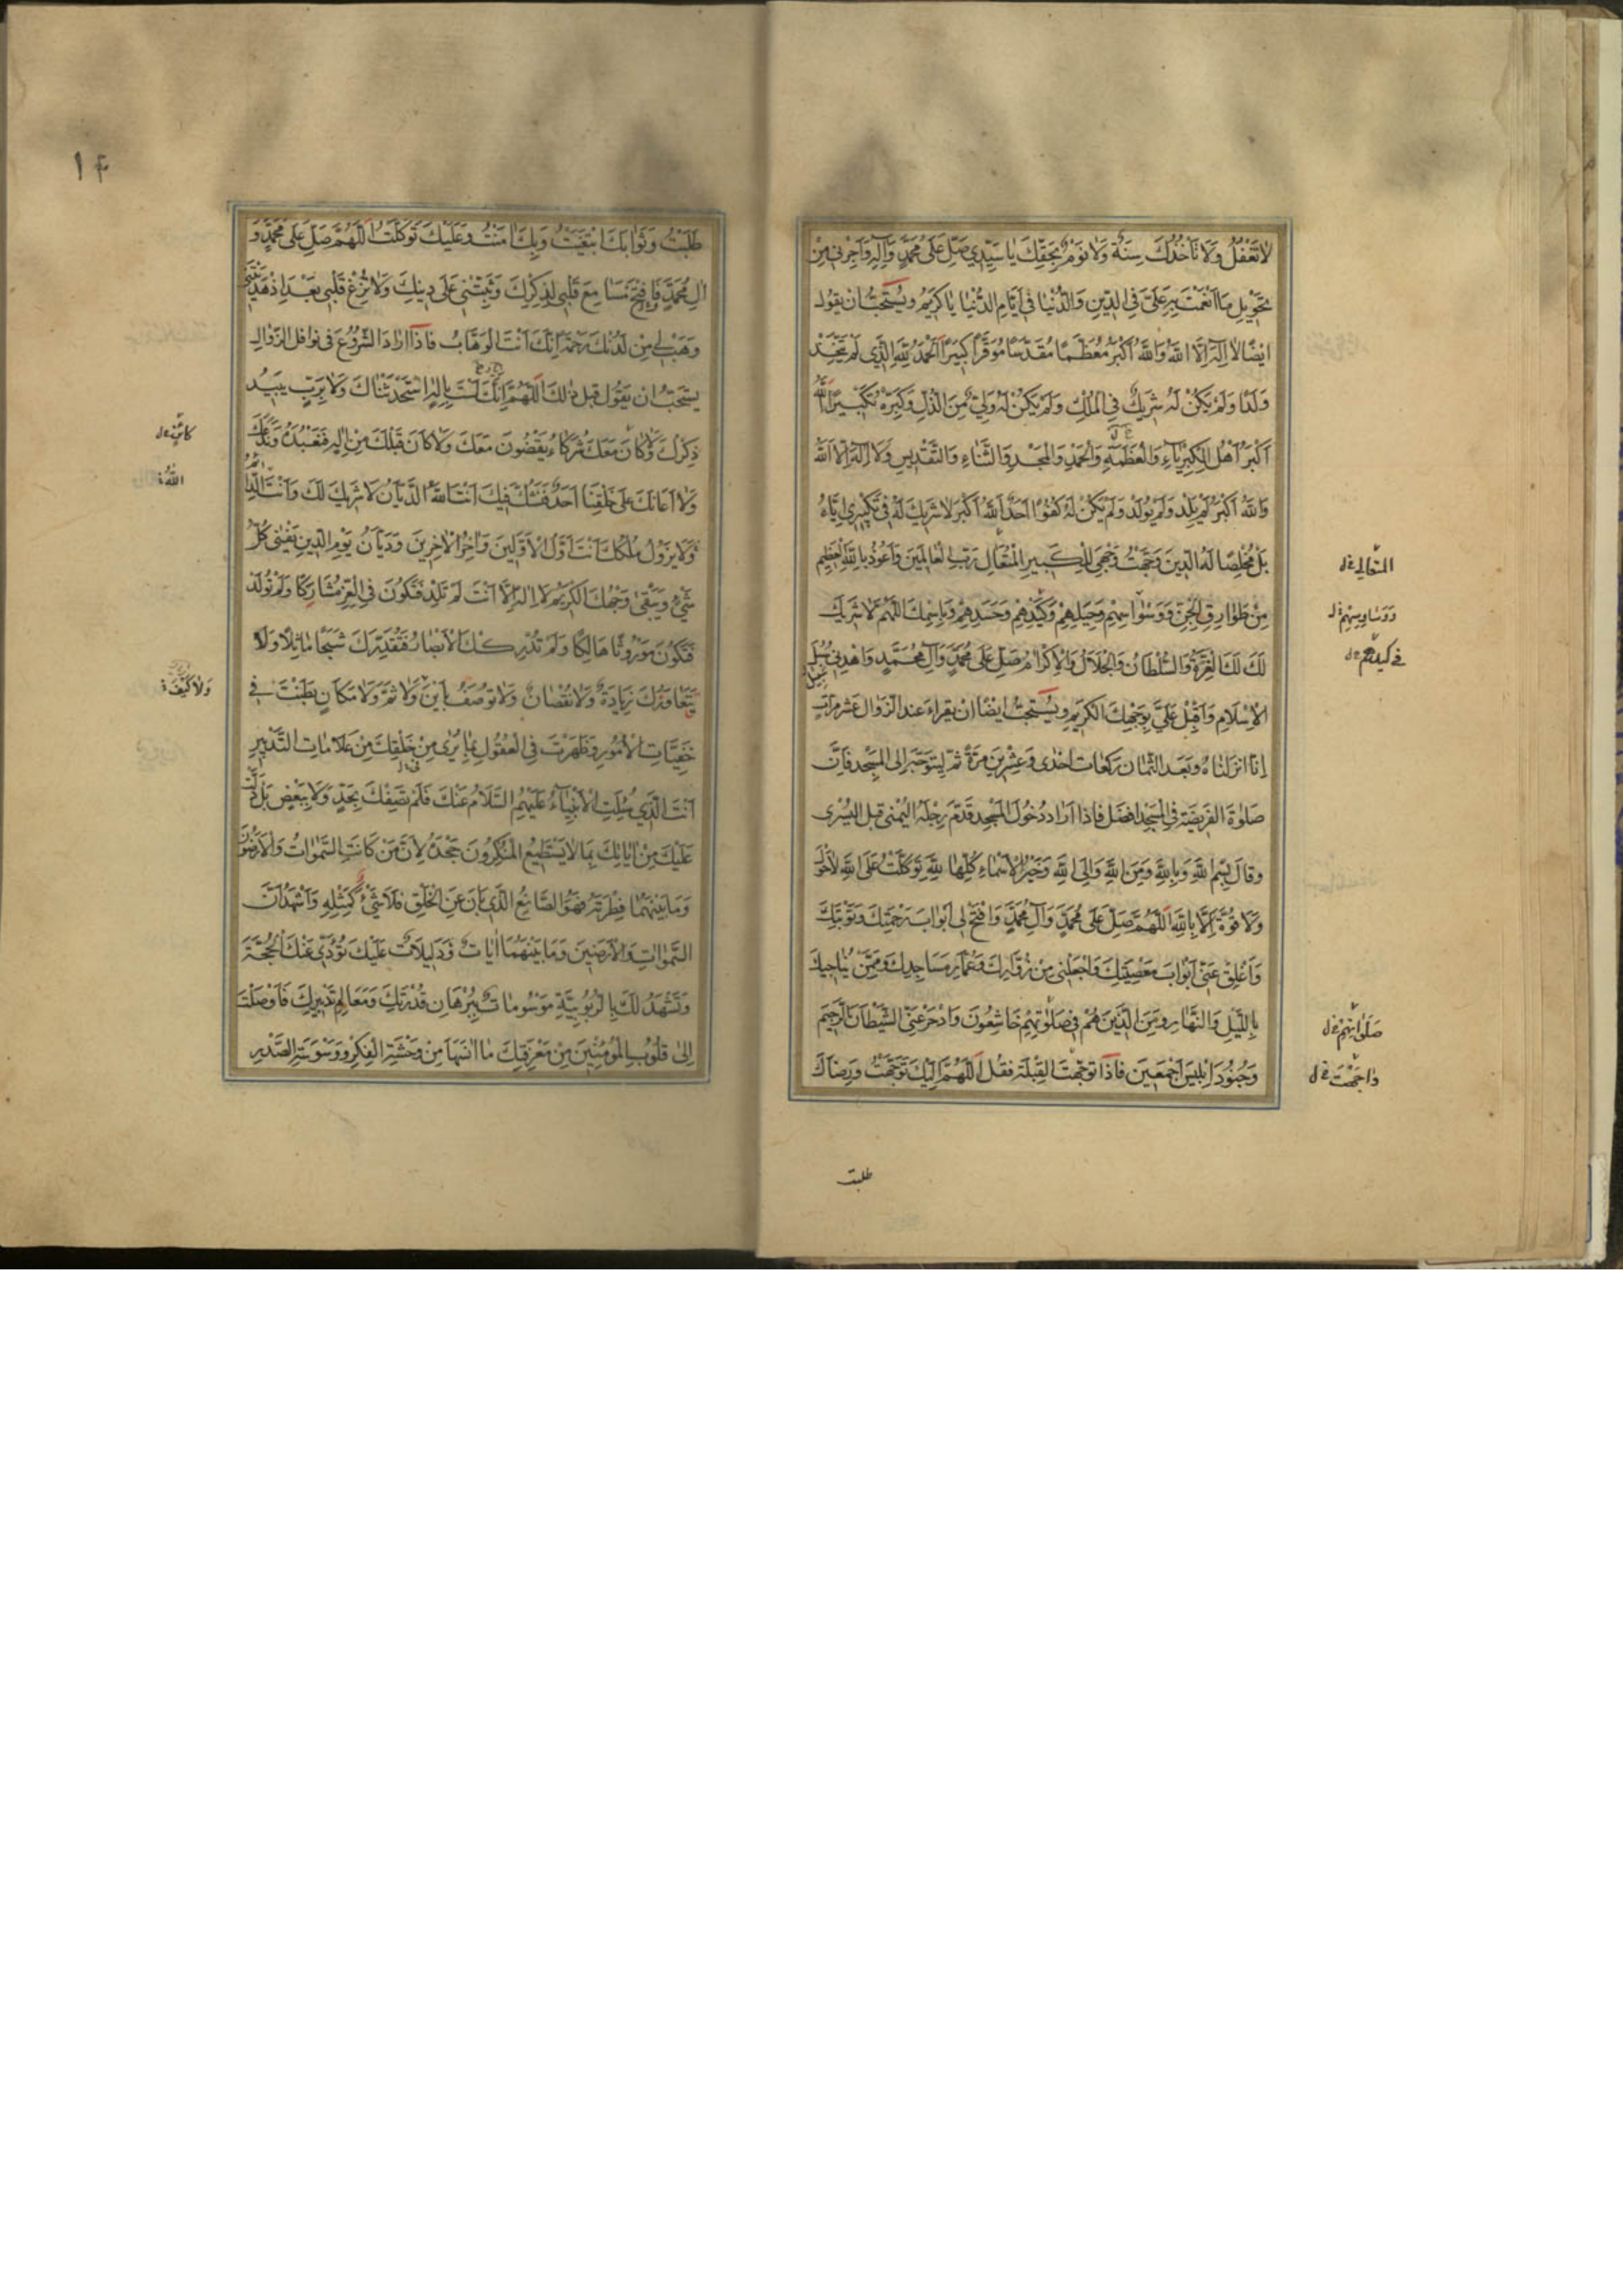 لا تَغْفُلُ وَلا تَأْخُذُكَ سِنَةٌ وَلا نَوْمٌ بِحَقِّكَ يا سَيِّدِي صَلِّ عَلى مُحَمَّدٍ وَآلِهِ وَأَجِرْنِي مِنْ
تَحْوِيلِ ما أَنْعَمْتَ بِهِ عَلَيَّ فِي الدِّينِ وَالدُّنْيا فِي أَيّامِ الدُّنْيا يا كَرِيمُ ويُستَحَبُّ ان يقول
ايضًا لا اِلهَ اِلَّا اللهُ وَاللهُ اَكْبَرُ مُعَظَّمًا مُقَدَّسًا مُوَقَّرًا كَبِيرًا اَلْحَمْدُ لِلّهِ الَّذِي لَمْ يَتَّخِذْ
وَلَدًا وَلَمْ يَكُنْ لَهُ شَرِيكٌ فِي المُلْكِ وَلَمْ يَكُنْ لَهُ وَلِيٌّ مِنَ الذُّلِّ وَكَبِّرْهُ تَكْبِيرًا اَللهُ
اَكْبَرُ اَهْلُ الْكِبْرِياءِ وَالْعَظَمَةِ وَالْحَمْدِ وَالْمَجْدِ وَالثَّناءِ وَالتَّقْدِيسِ وَلا اِلهَ اِلَّا اللهُ
وَاللهُ اَكْبَرُ لَمْ يَلِدْ وَلَمْ يُولَدْ وَلَمْ يَكُنْ لَهُ كُفُوًا اَحَدٌ اَللهُ اَكْبَرُ لا شَرِيكَ لَهُ فِي تَكْبِيرِي اِيّاهُ
بَلْ مُخْلِصًا لَهُ الدِّينَ وَجَّهْتُ وَجْهِيَ لِلْكَبِيرِ الْمُتَعالِ رَبِّ الْعالَمِينَ وَاَعُوذُ بِاللهِ الْعَظِيمِ
المتعالي خ ل
مِنْ طَوارِقِ الْجِنِّ وَوَسْواسِهِمْ وَحِيَلِهِمْ وَكَيْدِهِمْ وَحَسَدِهِمْ وَبِاسْمِكَ اللّهُمَّ لا شَرِيكَ
ووساوسهم خ ل
لَكَ لَكَ الْعِزَّةُ وَالسُّلْطانُ وَالْجَلالُ وَالْاِكْرامُ صَلِّ عَلى مُحَمَّدٍ وَآلِ مُحَمَّدٍ وَاهْدِنِي سُبُلَ
الْاِسْلامِ وَاَقْبِلْ عَلَيَّ بِوَجْهِكَ الْكَرِيمِ ويُستَحبّ ايضًا ان يقراء عند الزوال عشر مرات
اِنّا انزلناه وبعد الثمان ركعات احدى وعشرين مرّة ثم ليتوجّه الى المسجد فانّ
صلوة الفريضة في المسجد افضل فاذا اراد دخول المسجد قدّم رجله اليمنى قبل اليسرى
وقال بِسْمِ اللهِ وَبِاللهِ وَمِنَ اللهِ وَاِلَى اللهِ وَخَيْرُ الْاَسْماءِ كُلُّها لِلّهِ تَوَكَّلْتُ عَلَى اللهِ لا حَوْلَ
وَلا قُوَّةَ اِلَّا بِاللهِ اَللّهُمَّ صَلِّ عَلى مُحَمَّدٍ وَآلِ مُحَمَّدٍ وَافْتَحْ لِي اَبْوابَ رَحْمَتِكَ وَتَوْبَتِكَ
وَاَغْلِقْ عَنِّي اَبْوابَ مَعْصِيَتِكَ وَاجْعَلْنِي مِنْ زُوّارِكَ وَعُمّارِ مَساجِدِكَ وَمِمَّنْ يُناجِيكَ
بِاللَّيْلِ وَالنَّهارِ وَمِنَ الَّذِينَ هُمْ فِي صَلوتِهِمْ خاشِعُونَ وَادْحَرْ عَنِّي الشَّيْطانَ الرَّجِيمَ
صلواتهم خ ل
وَجُنُودَ اِبْلِيسَ اَجْمَعِينَ فاذا توجّهت القبلة فقل اَللّهُمَّ اِلَيْكَ تَوَجَّهْتُ وَرِضاكَ
طلبت
١٤
طَلَبْتُ وَثَوابَكَ ابْتَغَيْتُ وَبِكَ امَنْتُ وَعَلَيْكَ تَوَكَّلْتُ اَللّهُمَّ صَلِّ عَلى مُحَمَّدٍ وَ
الِ مُحَمَّدٍ وَافْتَحْ مَسامِعَ قَلْبِي لِذِكْرِكَ وَثَبِّتْنِي عَلى دِينِكَ وَلا تُزِغْ قَلْبِي بَعْدَ اِذْ هَدَيْتَنِي
وَهَبْ لِي مِنْ لَدُنْكَ رَحْمَةً اِنَّكَ اَنْتَ الْوَهّابُ فاذا اراد الشروع في نوافل الزوال
يستحبّ ان يقول قبل ذلك اَللّهُمَّ اِنَّكَ لَسْتَ بِاِلهٍ اسْتَحْدَثْناكَ وَلا بِرَبٍّ يَبِيدُ
ذِكْرُكَ وَلا كانَ مَعَكَ شُرَكاءُ يَقْضُونَ مَعَكَ وَلا كانَ قَبْلَكَ مِنْ اِلهٍ فَنَعْبُدَهُ وَنَدَعَكَ
وَلا اَعانَكَ عَلى خَلْقِنا اَحَدٌ فَنَشُكَّ فِيكَ اَنْتَ اللهُ الدَّيّانُ لا شَرِيكَ لَكَ وَاَنْتَ الدّائِمُ
وَلا يَزُولُ مُلْكُكَ اَنْتَ اَوَّلُ الْاَوَّلِينَ وَاخِرُ الْاخِرِينَ وَدَيّانُ يَوْمِ الدِّينِ يَفْنى كُلُّ
شَيْءٍ وَيَبْقى وَجْهُكَ الْكَرِيمُ لا اِلهَ اِلَّا اَنْتَ لَمْ تَلِدْ فَتَكُونَ فِي الْعِزِّ مُشارَكًا وَلَمْ تُولَدْ
فَتَكُونَ مَوْرُوثًا هالِكًا وَلَمْ تُدْرِكْكَ الْاَبْصارُ فَتُقَدِّرَكَ شَبَحًا ماثِلًا وَلا
يَتَعاوَرُكَ زِيادَةٌ وَلا نُقْصانٌ وَلا تُوصَفُ بِاَيْنَ وَلا ثَمَّ وَلا مَكانٍ بَطَنْتَ فِي
خَفِيّاتِ الْاُمُورِ وَظَهَرْتَ فِي الْعُقُولِ بِما يُرى مِنْ خَلْقِكَ مِنْ عَلاماتِ التَّدْبِيرِ
اَنْتَ الَّذِي سُئِلَتِ الْاَنْبِياءُ عَلَيْهِمُ السَّلامُ عَنْكَ فَلَمْ تَصِفْكَ بِحَدٍّ وَلا بِبَعْضٍ بَلْ دَلَّتْ
عَلَيْكَ مِنْ اياتِكَ بِما لا يَسْتَطِيعُ الْمُنْكِرُونَ جَحْدَهُ لِاَنَّ مَنْ كانَتِ السَّمواتُ وَالْاَرَضُونَ
وَما بَيْنَهُما فِطْرَتَهُ فَهُوَ الصّانِعُ الَّذِي بانَ عَنِ الْخَلْقِ فَلا شَيْءَ كَمِثْلِهِ وَاَشْهَدُ اَنَّ
السَّمواتِ وَالْاَرَضِينَ وَما بَيْنَهُما اياتٌ وَدَلِيلاتٌ عَلَيْكَ تُؤَدِّي عَنْكَ الْحُجَّةَ
وَتَشْهَدُ لَكَ بِالرُّبُوبِيَّةِ مَوْسُوماتٌ بِبُرْهانِ قُدْرَتِكَ وَمَعالِمِ تَدْبِيرِكَ فَاَوْصَلْتَ
اِلى قُلُوبِ الْمُؤْمِنِينَ مِنْ مَعْرِفَتِكَ ما انَسَها مِنْ وَحْشَةِ الْفِكْرِ وَوَسْوَسَةِ الصَّدْرِ